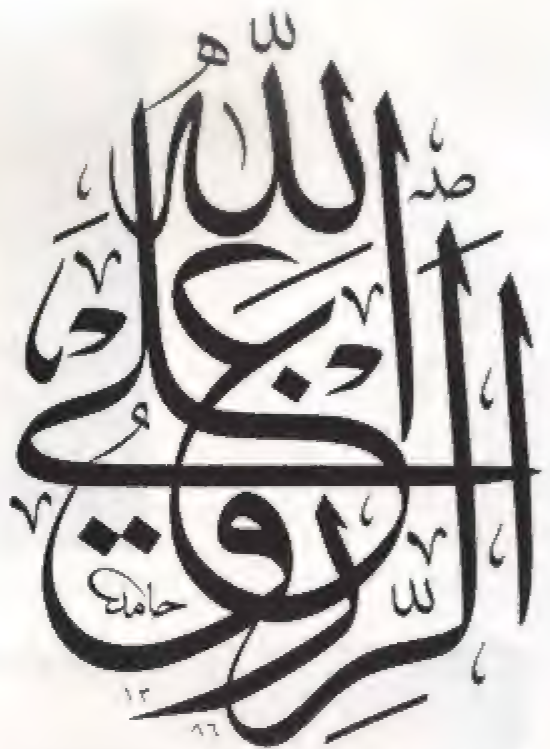 الرزق على الله
حامد
١٣٩٦